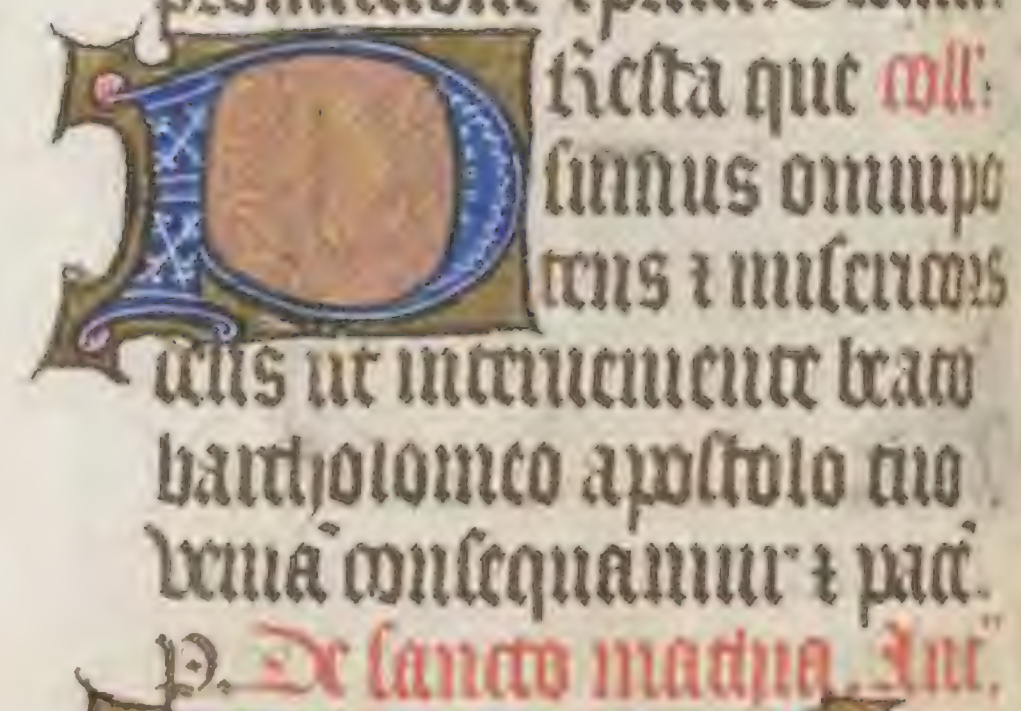 PResta que coll'.
sumus omnipo
tens ⁊ misericors
deus ut interueniente beato
bartholomeo apostolo tuo
veniā consequamur ⁊ pacē.
P. De sancto mathia. Ant'.